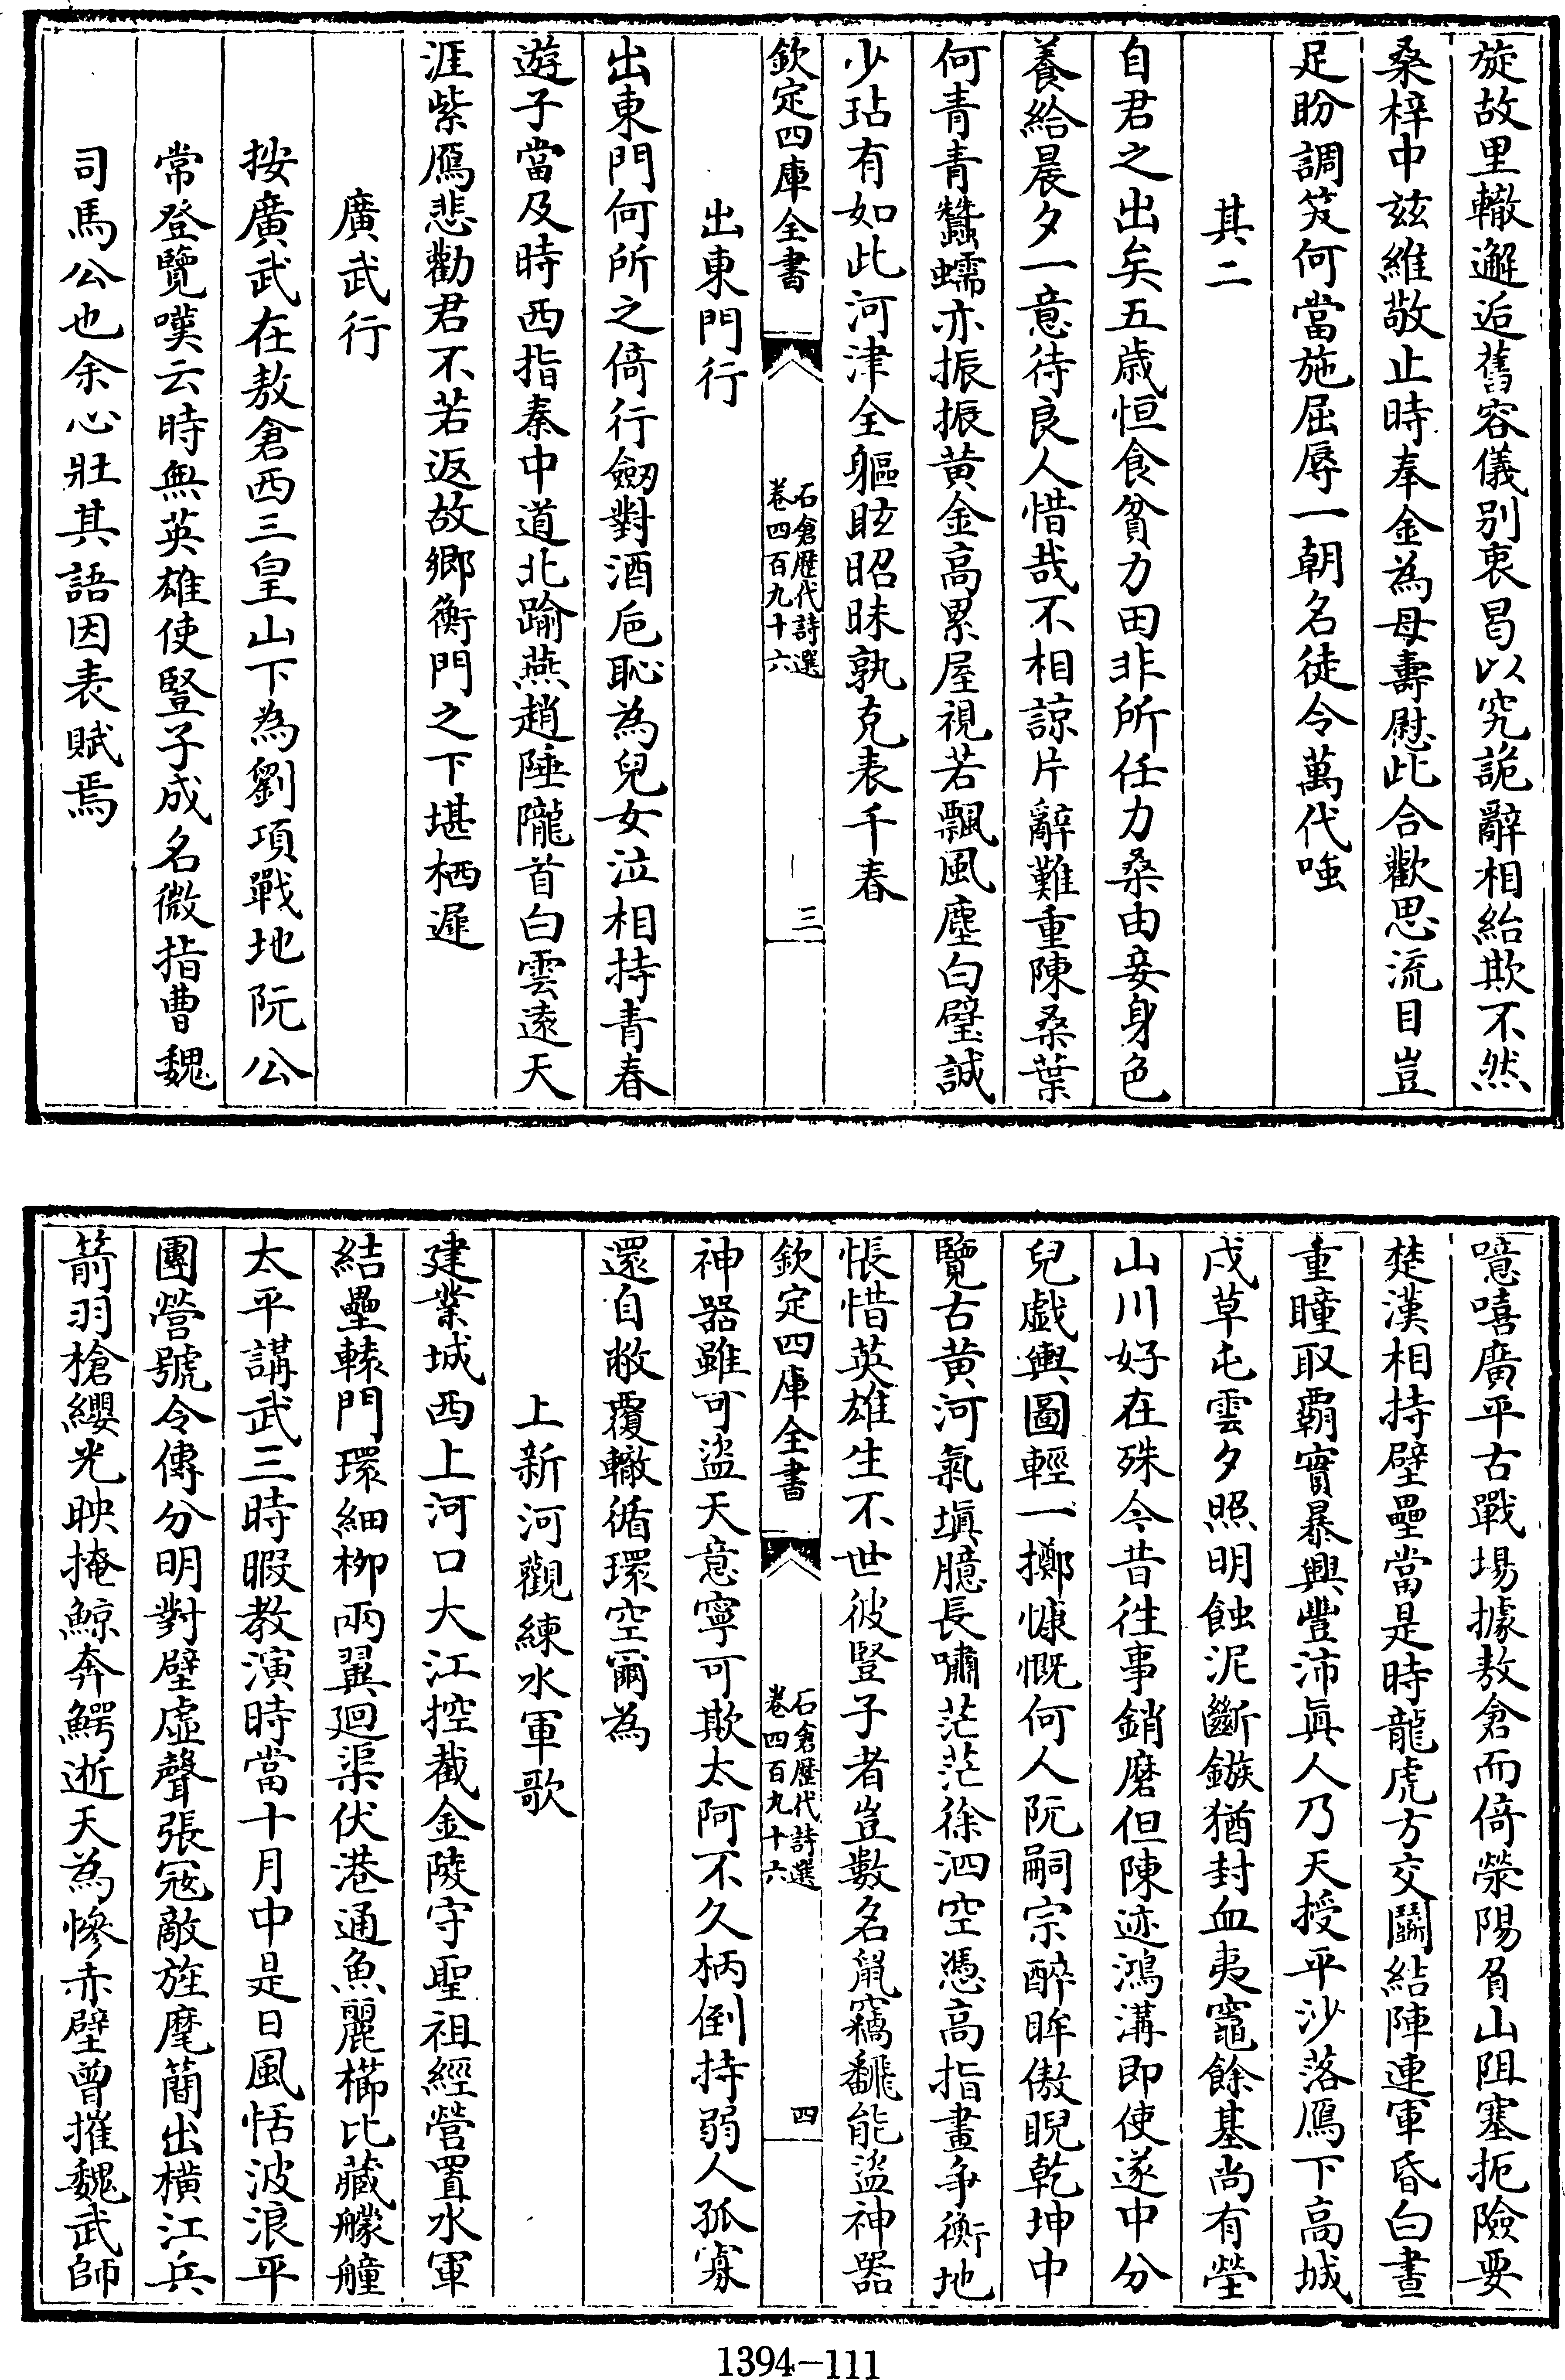 旋故里轍邂逅舊容儀别衷曷以究詭辭相紿欺不然
桑梓中兹維敬止時奉金為母壽慰此合歡思流目豈
足盼調笑何當施屈辱一朝名徒令萬代嗤
其二
自君之出矣五歳恒食貧力田非所任力桑由妾身色
養給晨夕一意待良人惜哉不相諒片辭難重陳桑葉
何青青蠶蠕亦振振黄金高累屋視若飄風塵白璧誠
少玷有如此河津全軀眩昭昧孰克表千春
欽定四庫全書
石倉歴代詩選
卷四百九十六
三
出東門行
出東門何所之倚行劒對酒巵恥為兒女泣相持青春
遊子當及時西指秦中道北踰燕趙陲隴首白雲逺天
涯紫鴈悲勸君不若返故鄉衡門之下堪栖遲
廣武行
按廣武在敖倉西三皇山下為劉項戰地阮公
常登覽嘆云時無英雄使豎子成名微指曹魏
司馬公也余心壯其語因表賦焉
噫嘻廣平古戰場據敖倉而倚滎陽負山阻塞扼險要
楚漢相持壁壘當是時龍虎方交鬭結陣連軍昏白晝
重瞳取覇實暴興豐沛眞人乃天授平沙落鴈下高城
戍草屯雲夕照明蝕泥斷鏃猶封血夷竈餘基尚有塋
山川好在殊今昔徃事銷磨但陳迹鴻溝即使遂中分
兒戱輿圖輕一擲慷慨何人阮嗣宗醉眸傲睨乾坤中
覽古黄河氣塡臆長嘯茫茫徐泗空憑高指畫争衡地
悵惜英雄生不世彼豎子者豈數名鼠竊飜能盜神器
欽定四庫全書
石倉歴代詩選
卷四百九十六
四
神器雖可盜天意寧可欺太阿不久柄倒持弱人孤寡
還自敝覆轍循環空爾為
上新河觀練水軍歌
建業城西上河口大江控截金陵守聖祖經營置水軍
結壘轅門環細柳兩翼廻渠伏港通魚麗櫛比藏艨艟
太平講武三時暇教演時當十月中是日風恬波浪平
團營號令傳分明對壁虚聲張冦敵旌麾蕳出横江兵
箭羽槍纓光映掩鯨奔鰐逝天為慘赤壁曾摧魏武師
1394-111